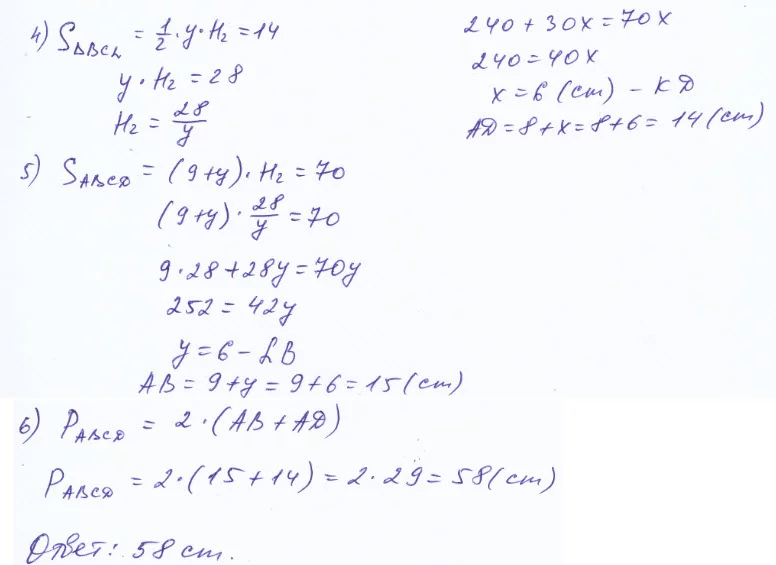 4) S△BCL = 1/2 · y · H₂ = 14
y · H₂ = 28
H₂ = 28/y
240 + 30x = 70x
240 = 40x
x = 6 (cm) – KD
AD = 8 + x = 8 + 6 = 14 (cm)
5) SABCD = (9+y) · H₂ = 70
(9+y) · 28/y = 70
9 · 28 + 28y = 70y
252 = 42y
y = 6 – LB
AB = 9 + y = 9 + 6 = 15 (cm)
6) PABCD = 2 · (AB + AD)
PABCD = 2 · (15 + 14) = 2 · 29 = 58 (cm)
Ответ: 58 cm.